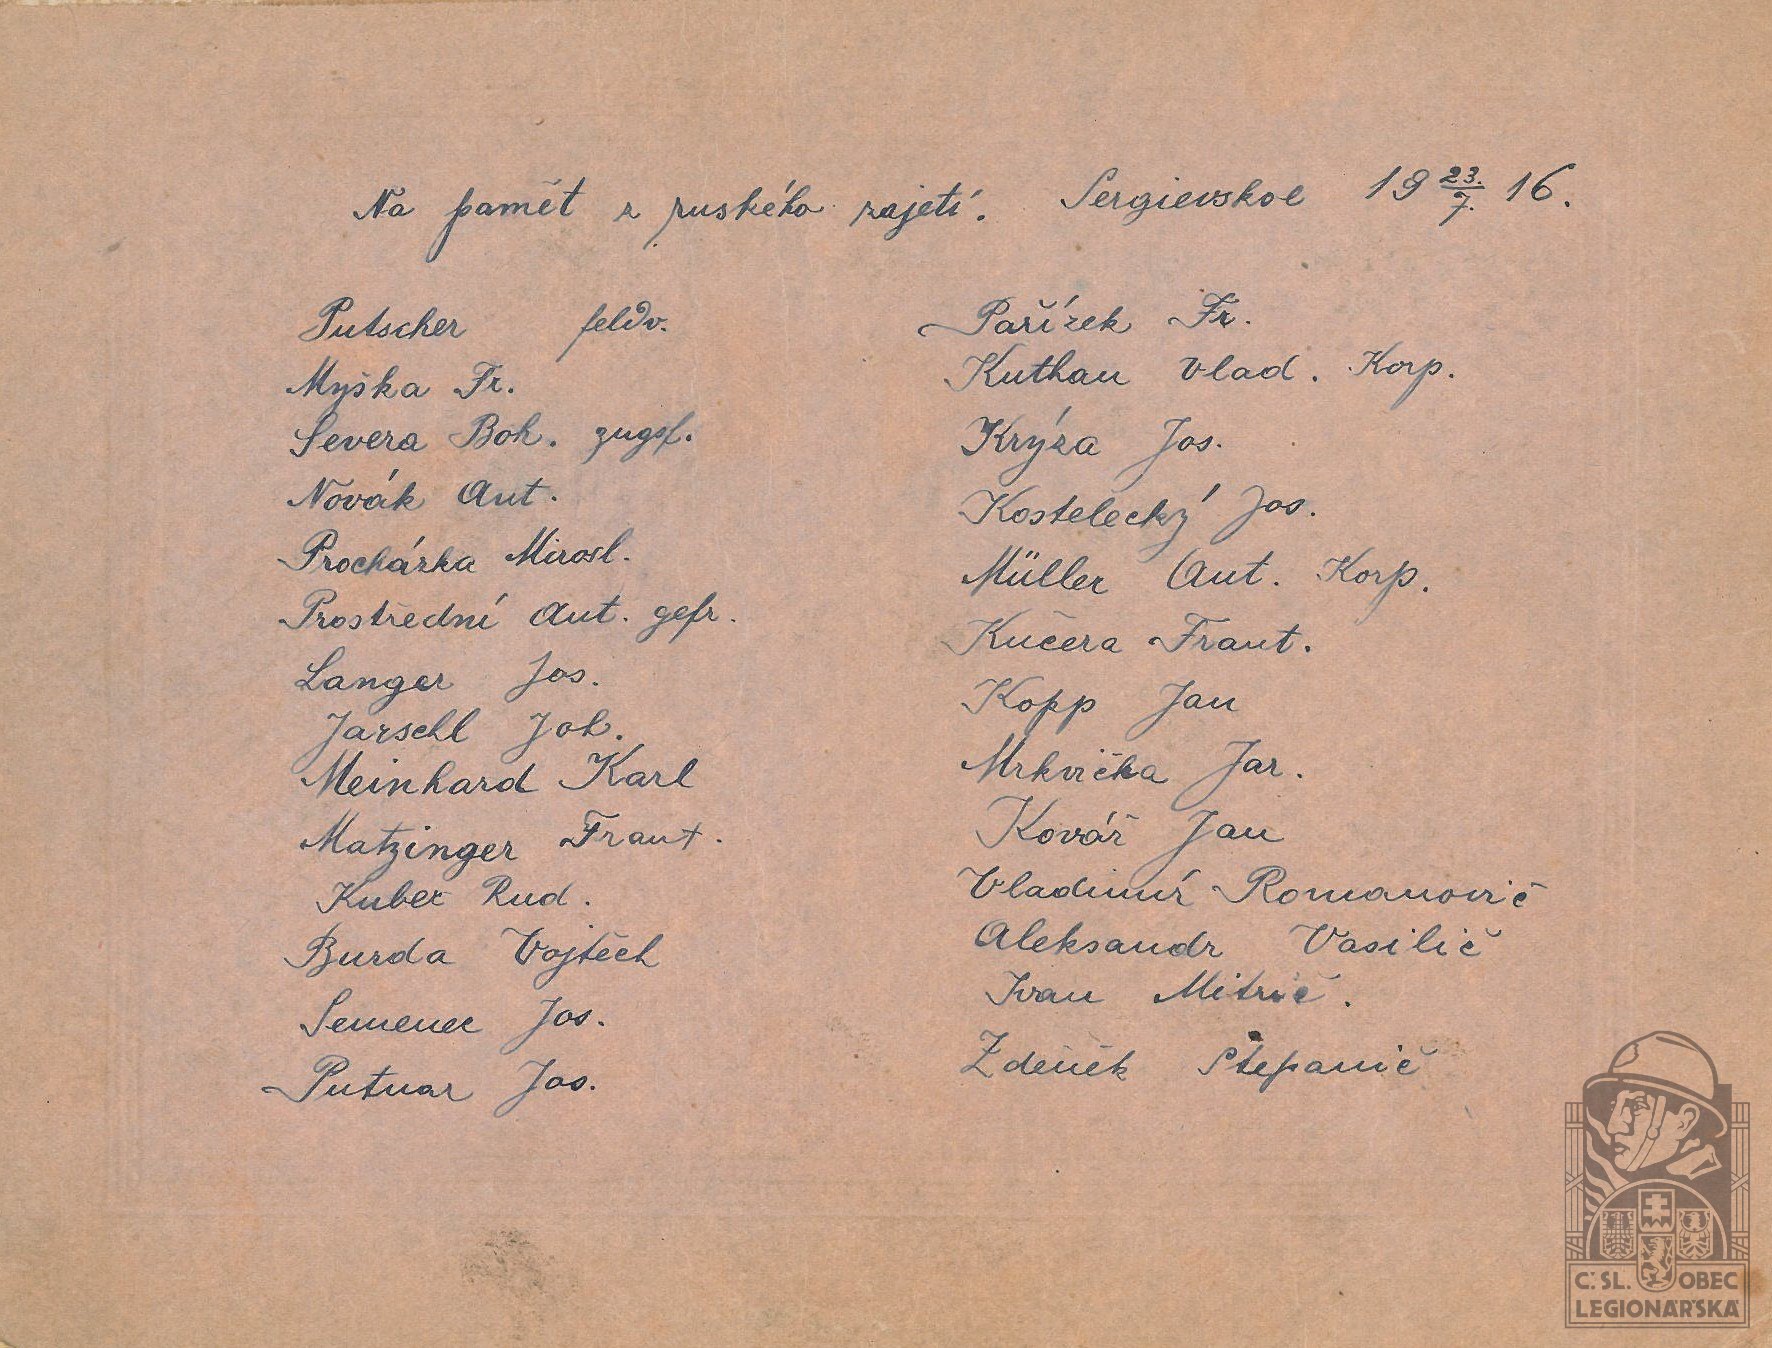 Na pamět z ruského zajetí. Sergievskoe 19 23./7. 16.
Putscher feldv.
Myška Fr.
Severa Boh. zugsf.
Novák Ant.
Procházka Mirosl.
Prostřední Ant. gefr.
Langer Jos.
Jarschl Joh.
Meinhard Karl
Matzinger Frant.
Kubec Rud.
Burda Vojtěch
Semenec Jos.
Putnar Jos.
Pařízek Fr.
Kuthan Vlad. Korp.
Krýza Jos.
Kostelecký Jos.
Müller Ant. Korp.
Kučera Frant.
Kopp Jan
Mrkvička Jar.
Kovář Jan
Vladimír Romanovič
Aleksandr Vasilič
Ivan Mitrič.
Zdeněk Štepanič
Č.SL. OBEC
LEGIONÁŘSKÁ